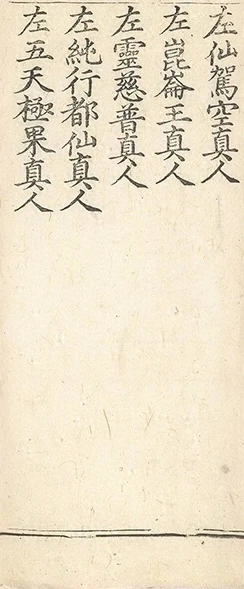 左仙駕空真人
左崑崙王真人
左靈慈普真人
左純行都仙真人
左五天極果真人